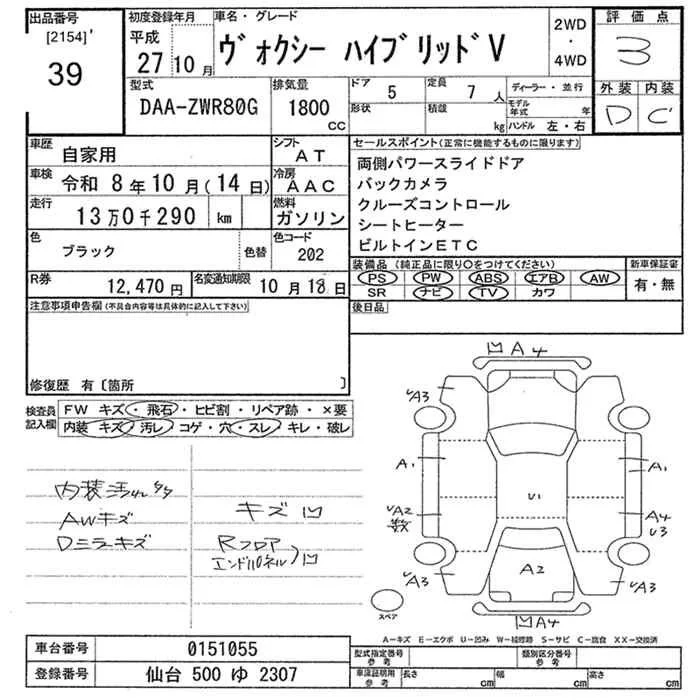 出品番号
[2154]'
39
初度登録年月
平成
27 10 月
車名・グレード
ヴォクシー ハイブリッドV
2WD
・
4WD
評価点
3
外装 内装
D C
型式
DAA-ZWR80G
排気量
1800
CC
ドア
5
定員
7 人
形状
積載
kg
ディーラー・並行
モデル年式 年
ハンドル 左・右
車歴
自家用
シフト
AT
車検 令和 8 年 10 月 ( 14 日)
冷房
AAC
走行
13 万 0 千 290 km
燃料
ガソリン
色
ブラック
色替
色コード
202
R券
12,470 円
名変通知期限
10 月 18 日
セールスポイント(正常に機能するものに限ります)
両側パワースライドドア
バックカメラ
クルーズコントロール
シートヒーター
ビルトインETC
装備品(純正品に限り○をつけてください)
PS PW ABS エアB AW
SR ナビ TV カワ
新車保証書
有・無
後日品
注意事項申告欄(不具合内容等は具体的に記入して下さい)
修復歴 有〔箇所 〕
検査員記入欄
FW キズ・飛石・ヒビ割・リペア跡・×要
内装 キズ・汚レ・コゲ・穴・スレ・キレ・破レ
内装汚れ
AWキズ
Dミラーキズ
キズ 凹
Rフロア
エンドパネル 凹
凹 A4
A3
A3
A1
A1
U1
A2
数
A4
U3
A2
A3
A3
凹A4
スペア
A－キズ E－エクボ U－凹み W－補修跡 S－サビ C－腐食 XX－交換済
車台番号
0151055
登録番号
仙台 500 ゆ 2307
型式指定番号
参考
類別区分番号
参考
車庫証明用
参考
長さ cm
幅 cm
高さ cm